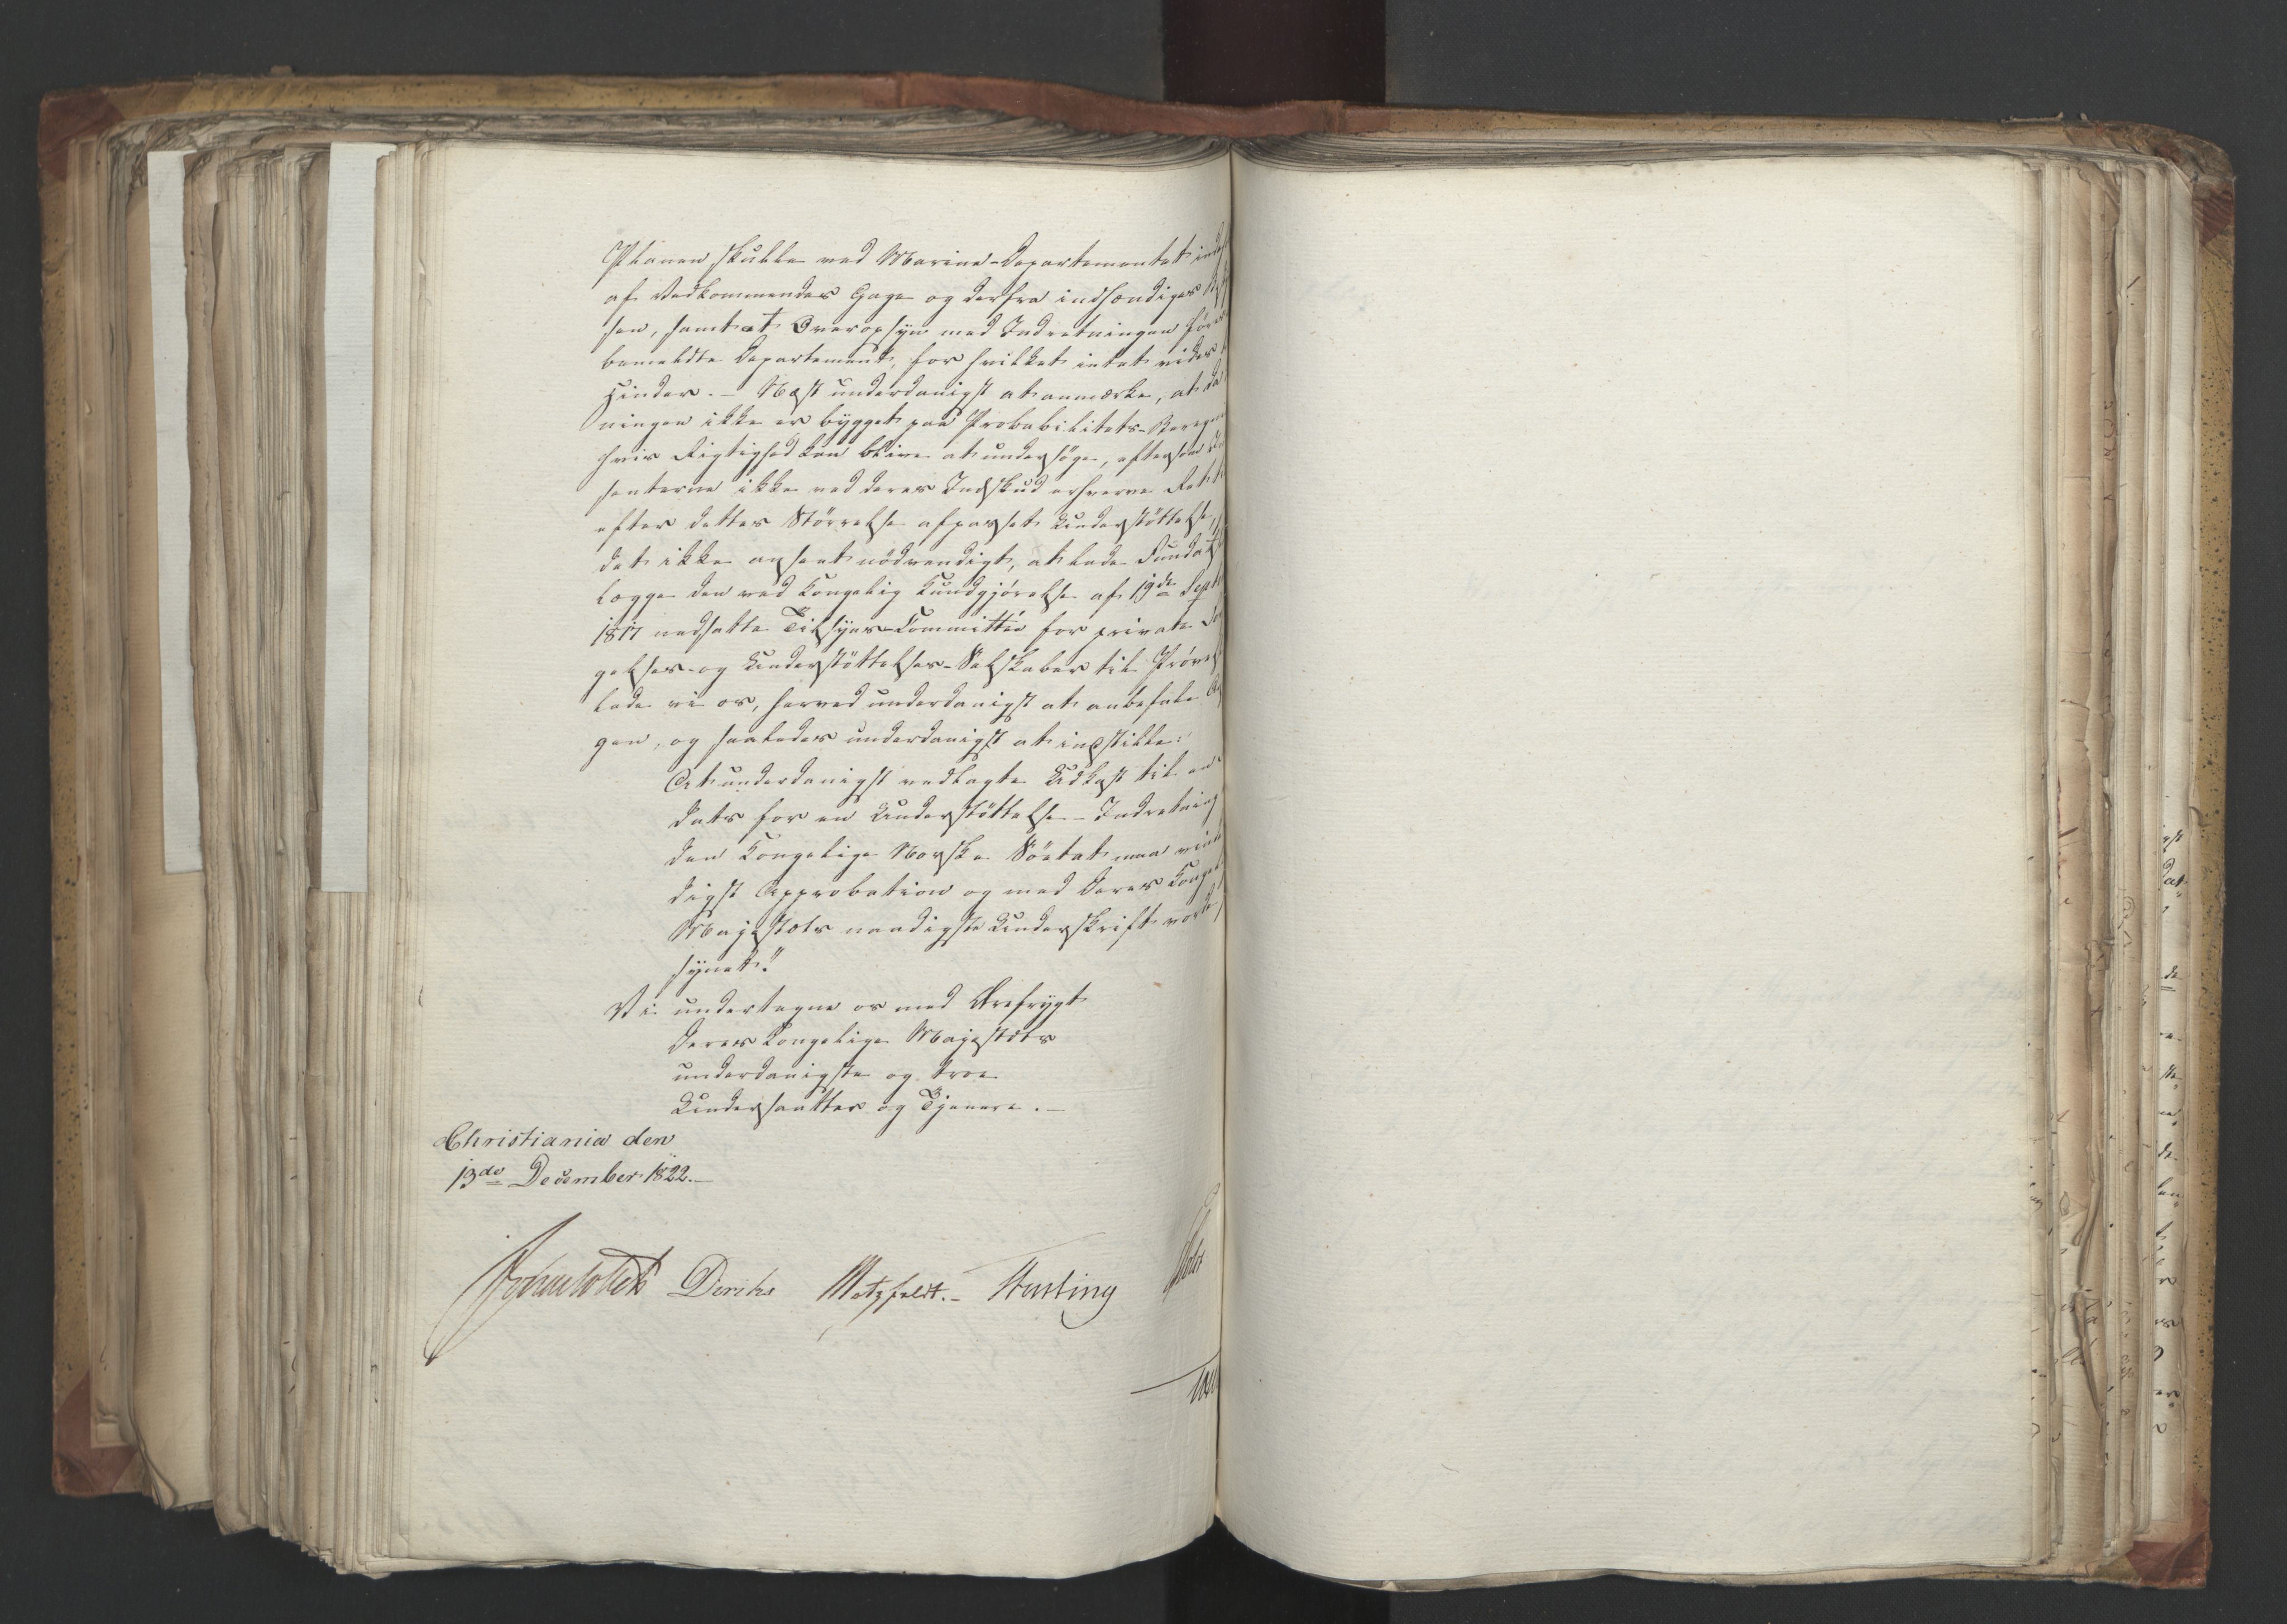 Planen skulle ved Marine-Departementet inde
af Vedkommendes Gage og derfra indsendiges
sen, samt at Overopsyn med Indretningen føres
bemeldte Departement, for hvilket intet vides
Hinder. – Næst underdanigst at anmærke, at da
ningen ikke er bygget paa Probabilitets-Beregn
hvis Rigtighed kan blive at undersöge, eftersom
senterne ikke ved deres Indskud erhverve Ret t
efter dettes Störrelse afpasset Understöttelse,
det ikke anseet nödvendigt, at lade Fundats
lægge den ved Kongelig Kundgjörelse af 19de Sept
1817 nedsatte Tilsyns-Committée for private For
gelses- og Understöttelses-Selskaber til Prövelse
lade vi os, herved underdanigst at anbefale
gen, og saaledes underdanigst at indstille:
At underdanigst vedlagte Udkast til en
dats for en Understöttelse-Indretning
den Kongelige Norske Söetat maa vinde
digst Approbation og med Deres Kongel
Majestæts naadigste Underskrift vorde
synet."
Vi undertegne os med Ærefrygt
Deres Kongelige Majestæts
underdanigste og troe
Undersaatter og Tjenere. –
Christiania den
13de December 1822. –
Diriks Motzfeldt. – Hesting